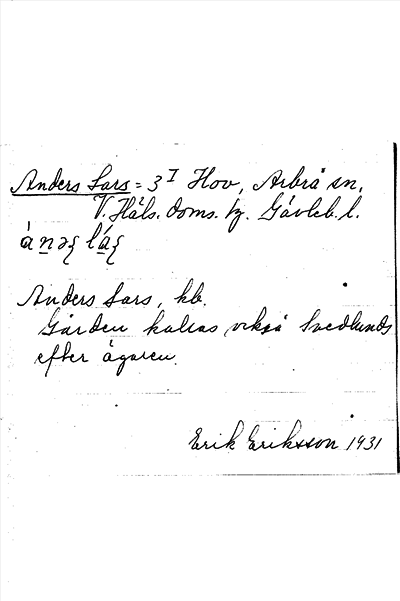 Anders Lars = 3ᴵ Hov, Arbrå sn,
V. Häls. doms. tg. Gävleb. l.
ánəʃ láʃ
Anders Lars, kb.
Gården kallas också Svedlunds
efter ägaren.
Erik Eriksson 1931